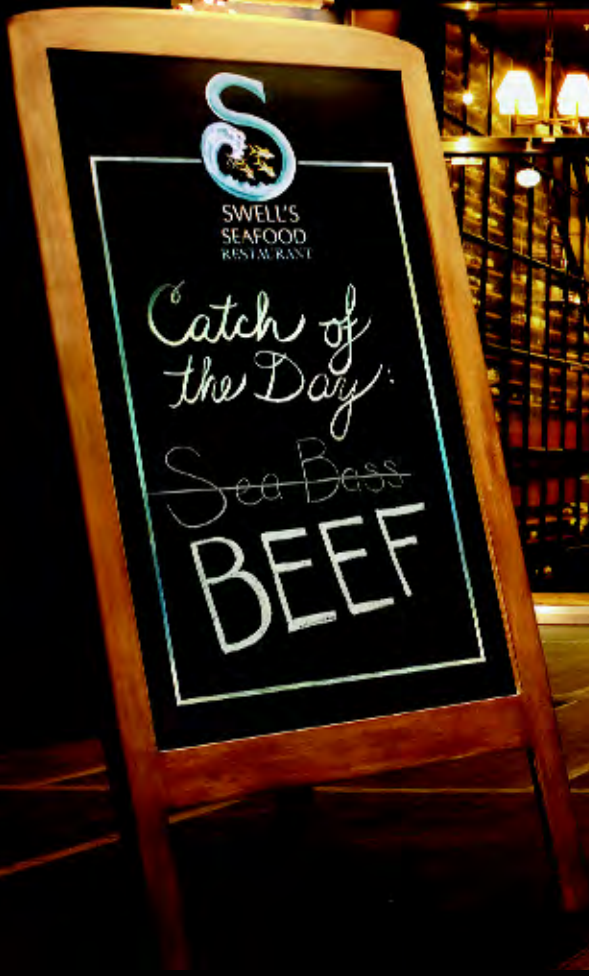 S
SWELL'S
SEAFOOD
RESTAURANT
Catch of
the Day:
Sea Bass
BEEF